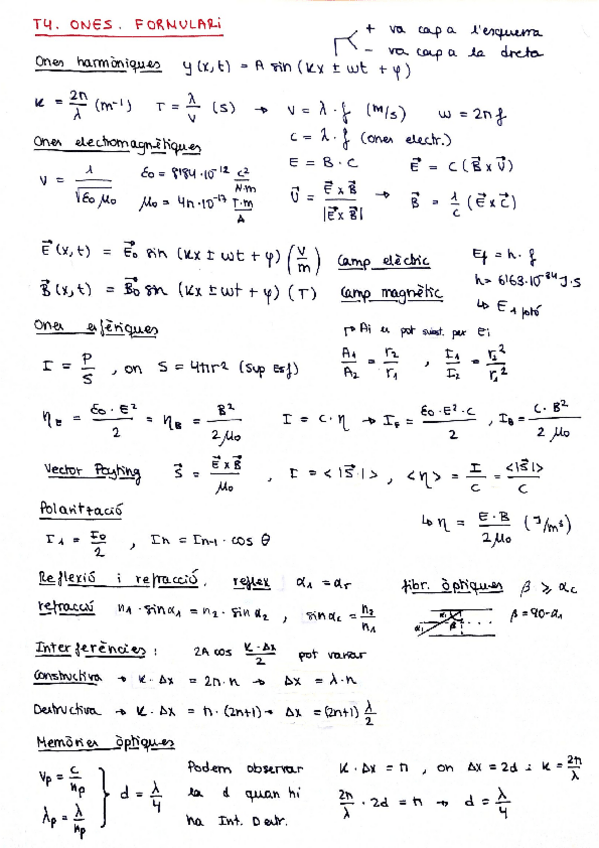 T4. ONES. FORMULARI
+ va cap a l'esquerra
- va cap a la dreta
Ones harmòniques y(x,t) = A sin(Kx ± ωt + φ)
K = 2π/λ (m⁻¹) T = λ/v (s) → v = λ·f (m/s) ω = 2πf
c = λ·f (ones electr.)
Ones electromagnètiques
E = B·C E⃗ = C(B⃗ x V⃗)
V = 1/√(ε₀ μ₀) ε₀ = 8'84·10⁻¹² C²/N·m
μ₀ = 4π·10⁻¹⁷ T·m/A
V⃗ = E⃗ x B⃗/|E⃗ x B⃗| → B⃗ = 1/c (E⃗ x C⃗)
E⃗(x,t) = E⃗₀ sin(Kx ± ωt + φ) (V/m) Camp elèctric Ef = h·f
B⃗(x,t) = B⃗₀ sin(Kx ± ωt + φ) (T) Camp magnètic h = 6'63·10⁻³⁴ J·s
↳ E 1 fotó
Ones esfèriques
→ Ai es pot subst. per Ei
I = P/S, on S = 4πr² (Sup Esf) A₁/A₂ = r₂/r₁ , I₁/I₂ = r₂²/r₁²
η_E = ε₀·E²/2 = η_B = B²/2μ₀ I = c·η → I_E = ε₀·E²·c/2 , I_B = C·B²/2μ₀
Vector Poyting S⃗ = E⃗ x B⃗/μ₀ , I = <|S⃗|>, <η> = I/C = <|S⃗|>/C
Polarització
↳ η = E·B/2μ₀ (J/m³)
I₁ = I₀/2 , In = In-1 · cos θ
Reflexió i refracció. reflex α₁ = αr fibr. òptiques β ⩾ αc
refracció n₁·sinα₁ = n₂·sinα₂ , sinαc = n₂/n₁ β = 90-α₁
Interferències: 2A cos K·Δx/2 pot variar
Constructiva → K·Δx = 2π·n → Δx = λ·n
Destructiva → K·Δx = π·(2n+1) → Δx = (2n+1) λ/2
Memòries òptiques
vp = c/np
λp = λ/np
d = λ/4
Podem observar
la d quan hi
ha Int. Destr.
K·Δx = π, on Δx = 2d i K = 2π/λ
2π/λ · 2d = π → d = λ/4